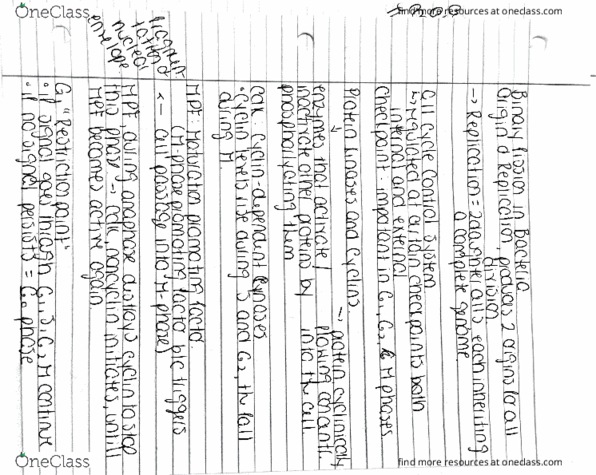 OneClass
find more resources at oneclass.com
Binary fission in Bacteria
Origin of Replication, produces 2 origins for cell
division
→ Replication = 2 daughter cells each inheriting
a complete genome
Cell cycle control system
↳ regulated at certain checkpoints both
internal and external
checkpoint - important in G1, G2, & M phases
Protein kinases and cyclins → protein cyclinically
enzymes that activate / flowing
inactivate other proteins by into the cell.
phosphorylating them
Cdk: Cyclin-dependant kinases
• Cyclin levels rise during S and G2, the fall
during M.
MPF: Maturation promotion factor.
(M-phase promoting factor b/c triggers
← cell passage into M-phase)
fragmen
tation of
nuclear
envelope
MPF during anaphase
this phase → initiates, untill
MPF becomes active again
G1 "Restriction point"
• If signal goes through G1, S, G2, M continue
• If no signal persists = G0 phase
OneClass
find more resources at oneclass.com